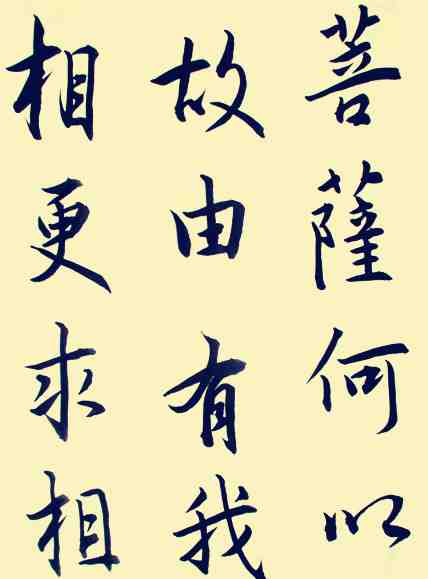 菩薩何以
故由有我
相更求相